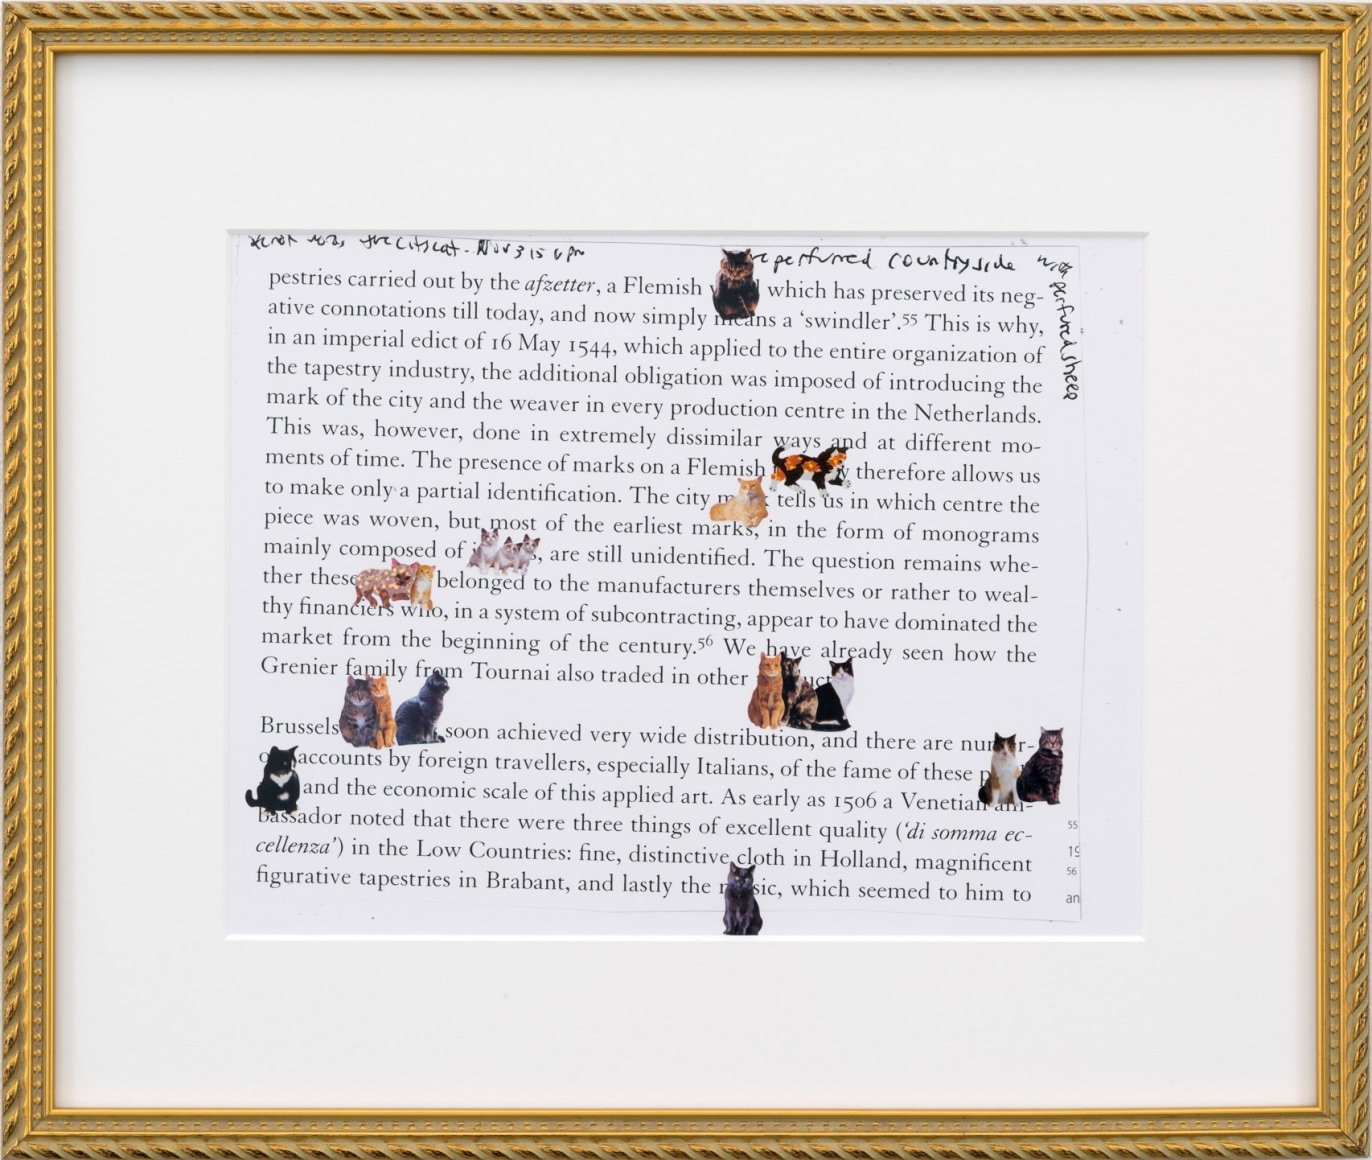 the city cat - Nov 3 15 6 pm perfumed countryside with perfumed sheep
pestries carried out by the afzetter, a Flemish which has preserved its neg-
ative connotations till today, and now simply means a ‘swindler’.55 This is why,
in an imperial edict of 16 May 1544, which applied to the entire organization of
the tapestry industry, the additional obligation was imposed of introducing the
mark of the city and the weaver in every production centre in the Netherlands.
This was, however, done in extremely dissimilar ways and at different mo-
ments of time. The presence of marks on a Flemish therefore allows us
to make only a partial identification. The city tells us in which centre the
piece was woven, but most of the earliest marks, in the form of monograms
mainly composed of , are still unidentified. The question remains whe-
ther these belonged to the manufacturers themselves or rather to weal-
thy financiers who, in a system of subcontracting, appear to have dominated the
market from the beginning of the century.56 We have already seen how the
Grenier family from Tournai also traded in other
Brussels soon achieved very wide distribution, and there are numer-
accounts by foreign travellers, especially Italians, of the fame of these
and the economic scale of this applied art. As early as 1506 a Venetian am-
bassador noted that there were three things of excellent quality (‘di somma ec-
cellenza’) in the Low Countries: fine, distinctive cloth in Holland, magnificent
figurative tapestries in Brabant, and lastly the music, which seemed to him to
55
19
56
an